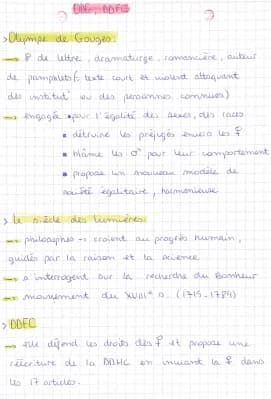 ODG, DDFC
> Olympe de Gouges :
→ ♀ de lettre, dramaturge, romancière, auteur
de pamphlets (texte court et violent attaquant
des institut° ou des personnes connues)
→ engagée • pour l'égalité des sexes, des races
▪ détruire les préjugés envers les ♀
▪ blâme les ♂ pour leur comportement
▪ propose un nouveau modèle de
société égalitaire, harmonieuse
> Le siècle des lumières
→ philosophes → croient au progrès humain,
guidés par la raison et la science
→ s'interrogent sur la recherche du Bonheur
→ mouvement du XVIIIe s. (1715-1789)
> DDFC
→ elle défend les droits des ♀ et propose une
réécriture de la DDHC en incluant la ♀ dans
les 17 articles.